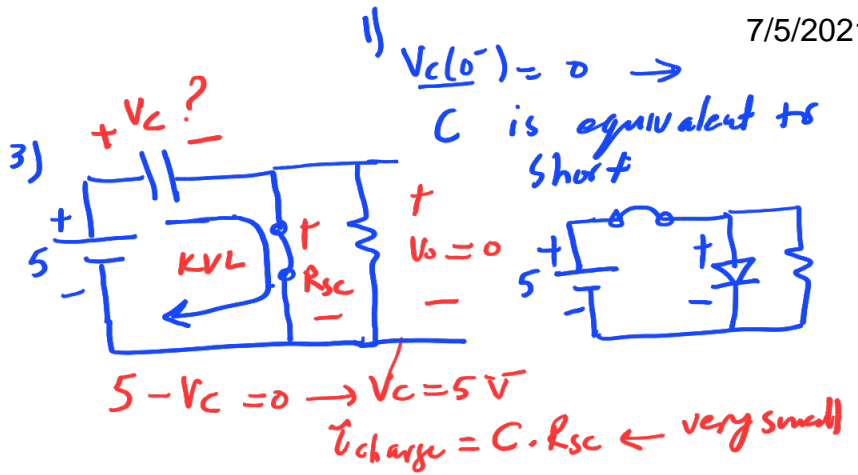 7/5/2021
1)
Vc(0⁻) = 0 →
C is equivalent to
short
3)
+ Vc ? −
+
5
−
KVL
+
Rsc
−
+
Vo = 0
−
+
5
−
+
−
5 − Vc = 0 → Vc = 5 V
τcharge = C . Rsc ← very small